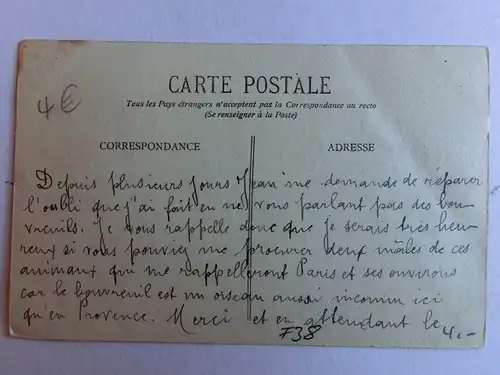 4€
CARTE POSTALE
Tous les Pays étrangers n'acceptent pas la Correspondance au recto
(Se renseigner à la Poste)
CORRESPONDANCE
ADRESSE
Depuis plusieurs jours Jean me demande de réparer
l'oubli que j'ai fait en ne vous parlant pas des bou-
vreuils. Je vous rappelle donc que je serais très heu-
reux si vous pouviez me procurer deux mâles de ces
animaux qui me rappelleront Paris et ses environs
car le bouvreuil est un oiseau aussi inconnu ici
qu'en Provence. Merci et en attendant le
F38
4.-